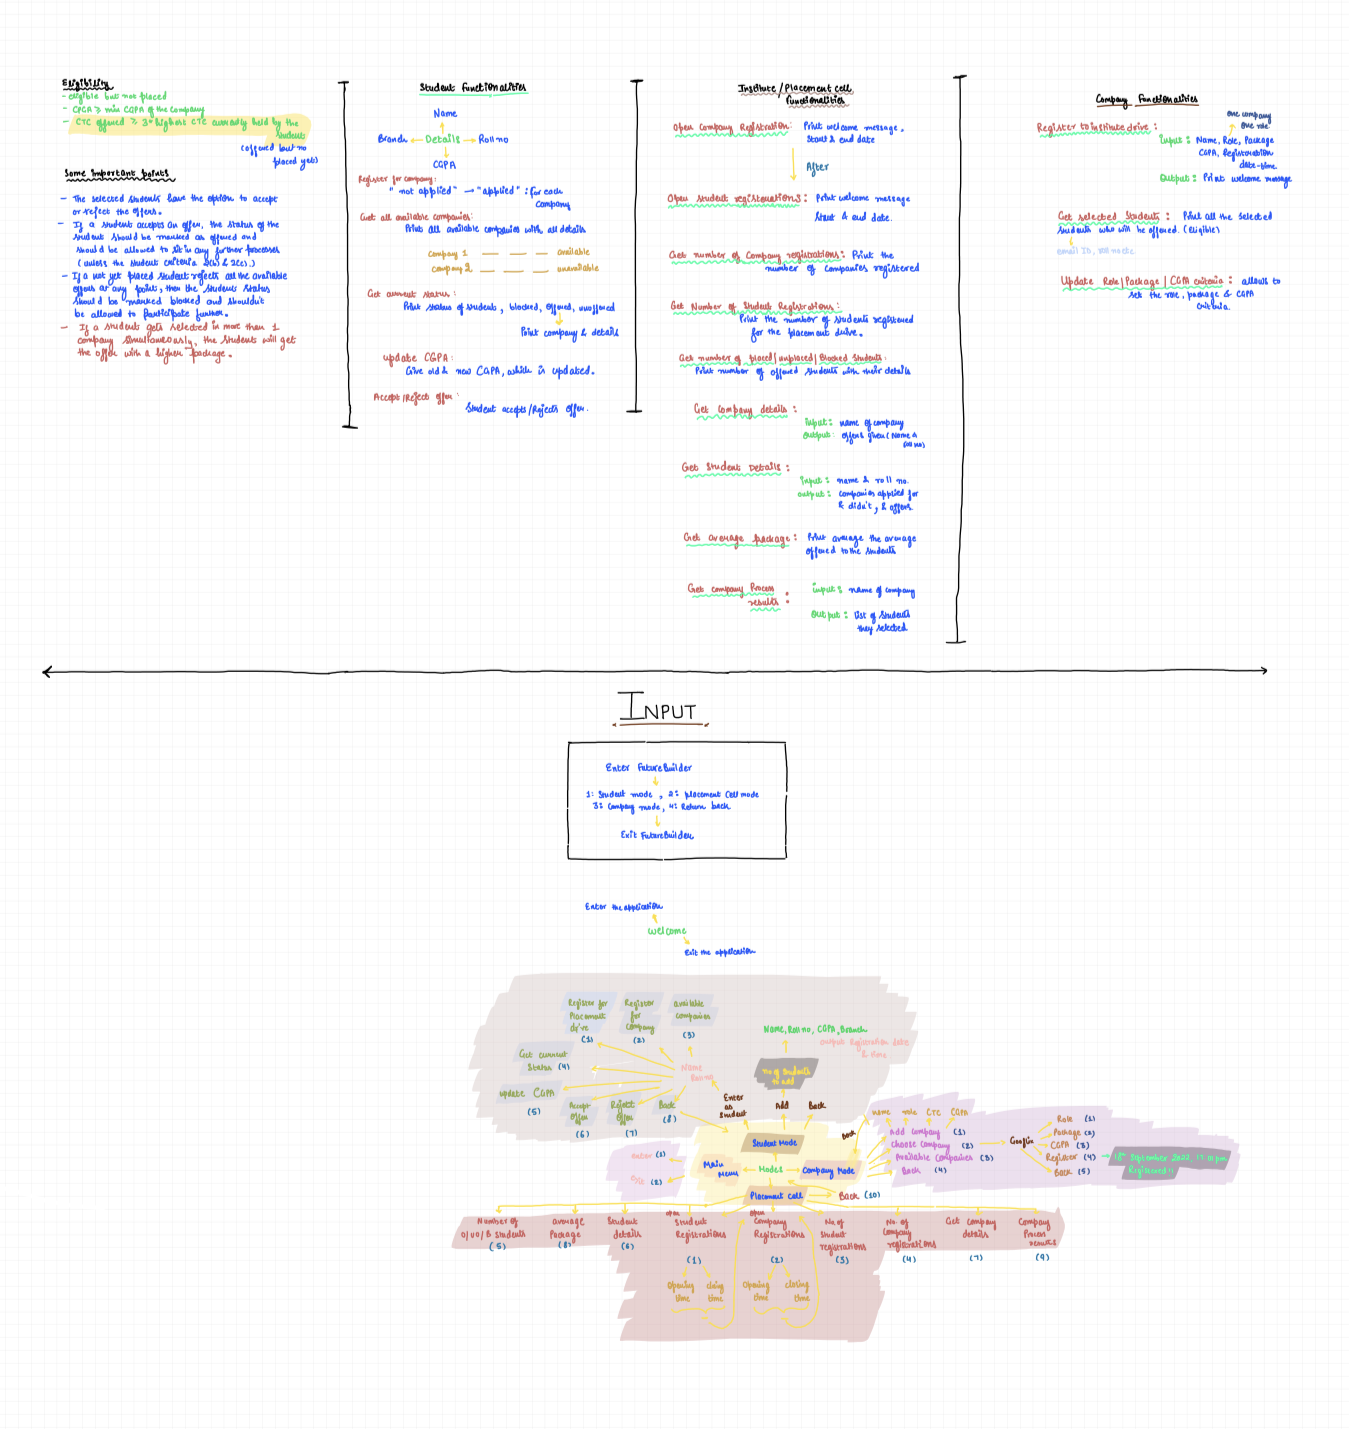 Eligibility
- eligible but not placed
- CPGA ≥ min CGPA of the Company
- CTC offered ≥ 3* highest CTC currently held by the
student
(offered but no
placed yet)
Some important points
- The selected students have the option to accept
or reject the offers.
- If a student accepts an offer, the status of the
student should be marked as offered and
should be allowed to sit in any further processes
(unless the student criteria 2(b) & 2(c).)
- If a not yet placed student rejects all the available
offers at any point, then the students status
should be marked blocked and shouldn't
be allowed to participate further.
- If a student gets selected in more than 1
company simultaneously, the student will get
the offer with a higher package.
Student functionalities
Name
Branch ← Details → Roll no
CGPA
Register for company:
"not applied" → "applied" : for each
company
Get all available companies:
Print all available companies with all details
company 1 — — — available
company 2 — — — unavailable
Get current status:
Print status of students, blocked, offered, unoffered
Print company & details
update CGPA:
Give old & new CGPA, which is updated.
Accept/Reject offer:
Student accepts/Rejects offer.
Institute/Placement cell
functionalities
Open Company Registration: Print welcome message.
Start & end date
After
Open student registerations: Print welcome message
Start & end date.
Get number of Company registrations: Print the
number of companies registered
Get Number of Student Registrations:
Print the number of students registered
for the placement drive.
Get number of placed/unplaced/Blocked Students:
Print number of offered students with their details
Get Company details:
input: name of company
output: offers given (Name &
roll no)
Get Student Details:
Input: name & roll no.
output: companies applied for
& didn't, & offers.
Get average package: Print average the average
offered to the students
Get company Process
results:
input: name of company
Output: list of students
they selected
Company Functionalities
one company
one role
Register to institute drive:
input: Name, Role, Package
CGPA, Registeration
date-time.
Output: Print welcome message
Get selected Students: Print all the selected
students who will be offered. (eligible)
email ID, roll no etc
Update Role/Package/CGPA criteria: allows to
set the role, package & CGPA
criteria.
INPUT
Enter FutureBuilder
1: Student mode, 2: placement Cell mode
3: Company mode, 4: Return back
Exit FutureBuilder
Enter the application
welcome
Exit the application
Register for
Placement
drive
(1)
Register
for
company
(2)
available
companies
(3)
Name, Roll no, CGPA, Branch
output Registration date
& time
Get current
Status (4)
Name
Roll no
No of students
to add
update CGPA
(5)
Accept
offer
(6)
Reject
offer
(7)
Back
(8)
Enter
as
student
Add
Back
name role CTC CGPA
Add company (1)
Choose company (2)
Available companies (3)
Back (4)
Back
Role (1)
Package (2)
CGPA (3)
Register (4)
Back (5)
18th September 2022, 11:01 pm
Registered!!
Student Mode
enter (1)
Exit (2)
Main
Menu
Modes
Company Mode
Placement cell
Back (10)
Number of
O/UO/B students
(5)
average
Package
(8)
Student
details
(6)
open
Student
Registrations
(1)
open
Company
Registrations
(2)
No. of
student
registrations
(3)
No. of
Company
registrations
(4)
Get company
details
(7)
Company
Process
results
(9)
Opening
time
closing
time
Opening
time
closing
time